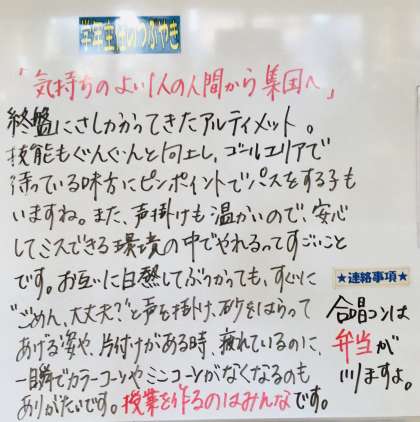 学年主任のつぶやき
「気持ちのよい1人の人間から集団へ」
終盤にさしかかってきたアルティメット。
技能もぐんぐんと向上し、ゴールエリアで
待っている味方にピンポイントでパスをする子も
いますね。また、声掛けも温かいので、安心
してミスできる環境の中でやれるってすごいこと
です。お互いに白熱してぶつかっても、すぐに
"ごめん、大丈夫?"と声を掛け、砂をはらって
あげる姿や、片付けがある時、疲れているのに、
一瞬でカラーコーンやミニコーンがなくなるのも
ありがたいです。授業を作るのはみんなです。
★連絡事項★
合唱コンは
弁当が
いりますよ。